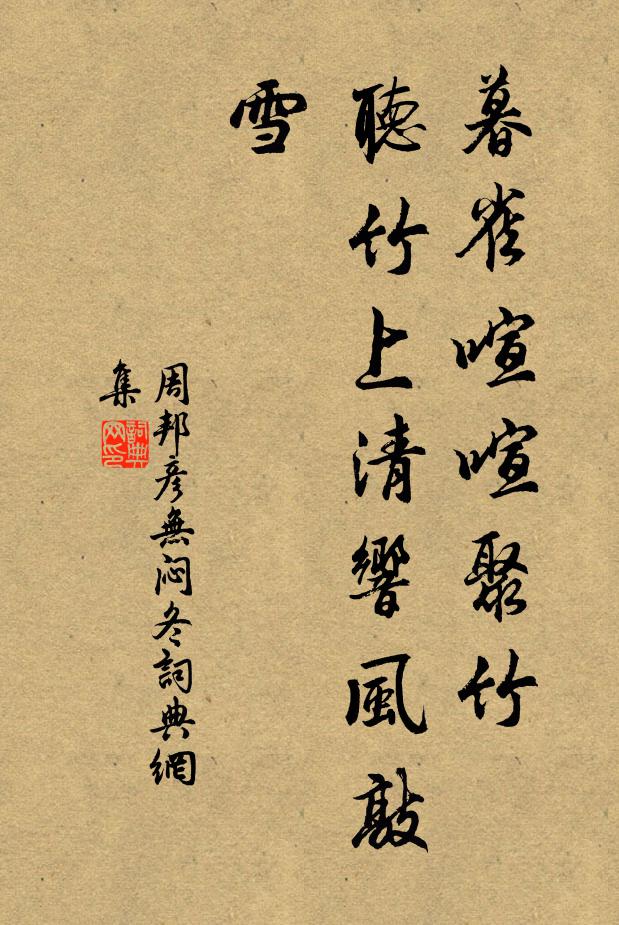 暮雀喧喧聚竹
聽竹上清響風敲
雪
周邦彥無悶冬詞典網
集
詞典
网印